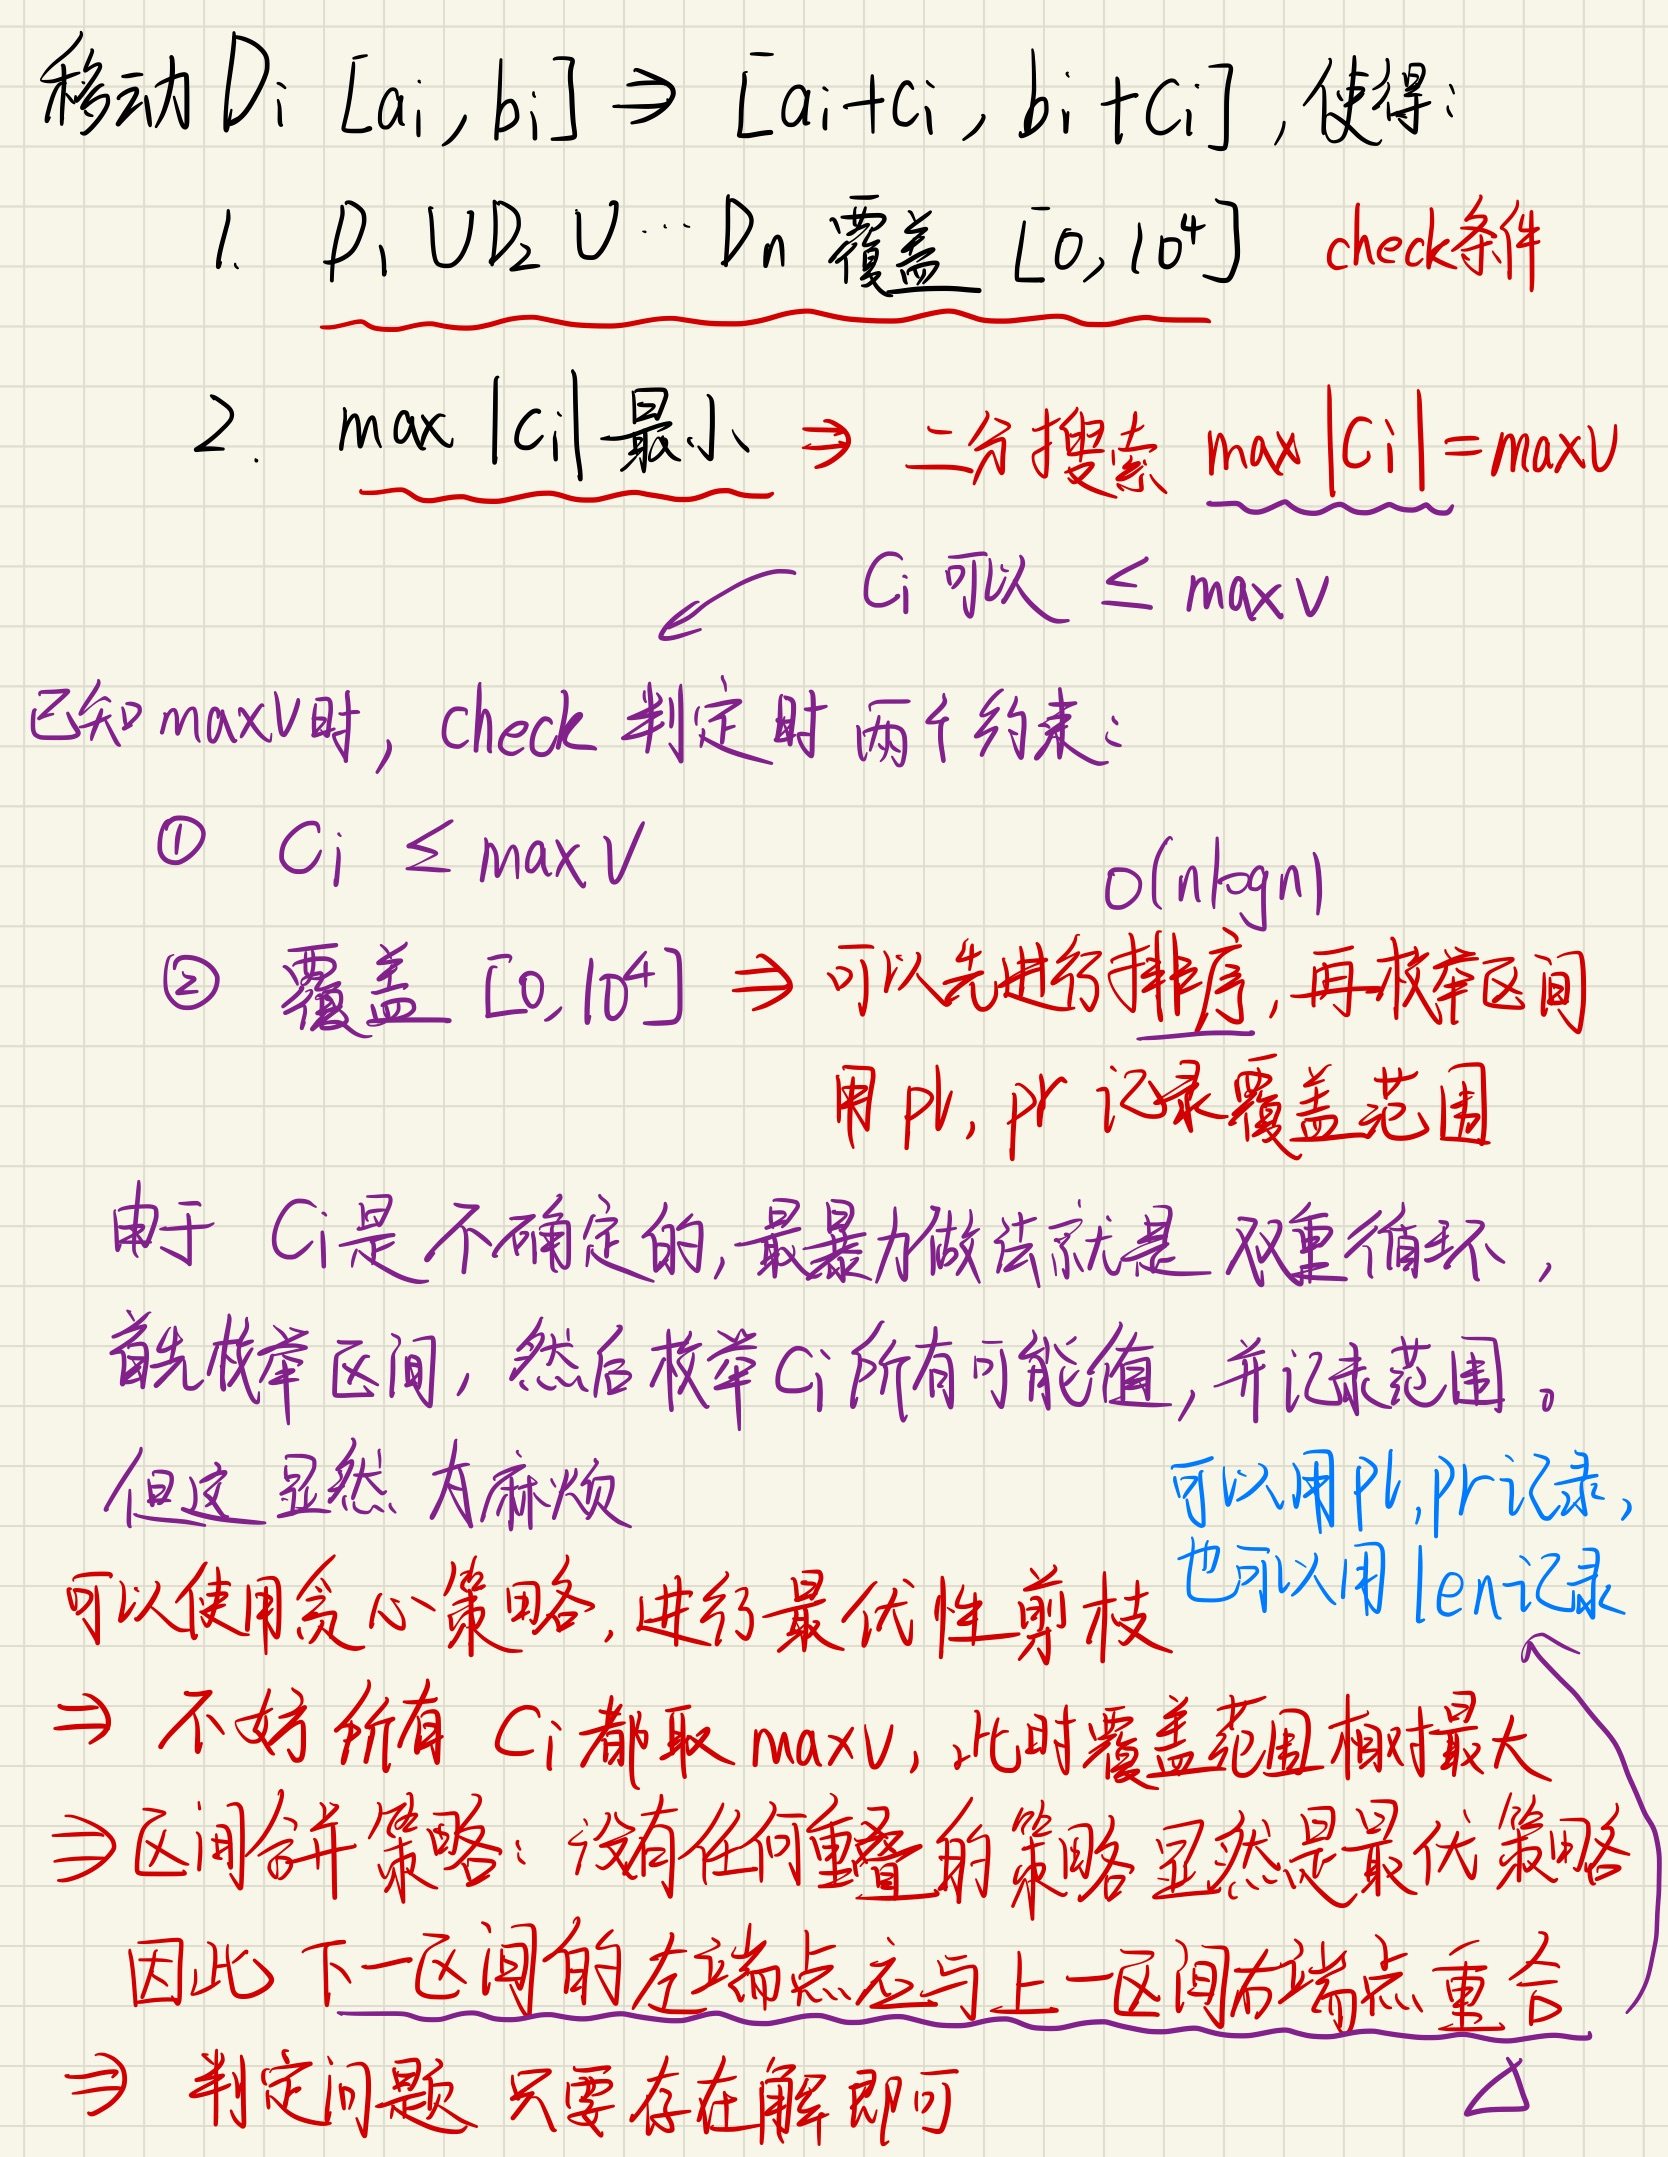 移动 Di [ai, bi] ⇒ [ai+ci, bi+ci], 使得:
1. D1 ∪ D2 ∪ … Dn 覆盖 [0, 10⁴] check条件
2. max |ci| 最小 ⇒ 二分搜索 max |Ci| = maxv
Ci 可以 ≤ maxv
已知 maxv时, check 判定时 两个约束:
① Ci ≤ maxv
O(nlogn)
② 覆盖 [0, 10⁴] ⇒ 可以先进行排序, 再枚举区间
用 pl, pr 记录覆盖范围
由于 Ci是不确定的, 最暴力做法就是 双重循环,
首先枚举区间, 然后枚举Ci所有可能值, 并记录范围。
但这 显然 太麻烦
可以用pl, pr记录,
也可以用 len记录
可以使用贪心策略, 进行最优性剪枝
⇒ 不妨所有 Ci都取 maxv, 此时覆盖范围相对最大
⇒ 区间合并策略: 没有任何重叠的策略显然是最优策略
因此 下一区间的左端点应与上一区间右端点重合
⇒ 判定问题 只要存在解即可